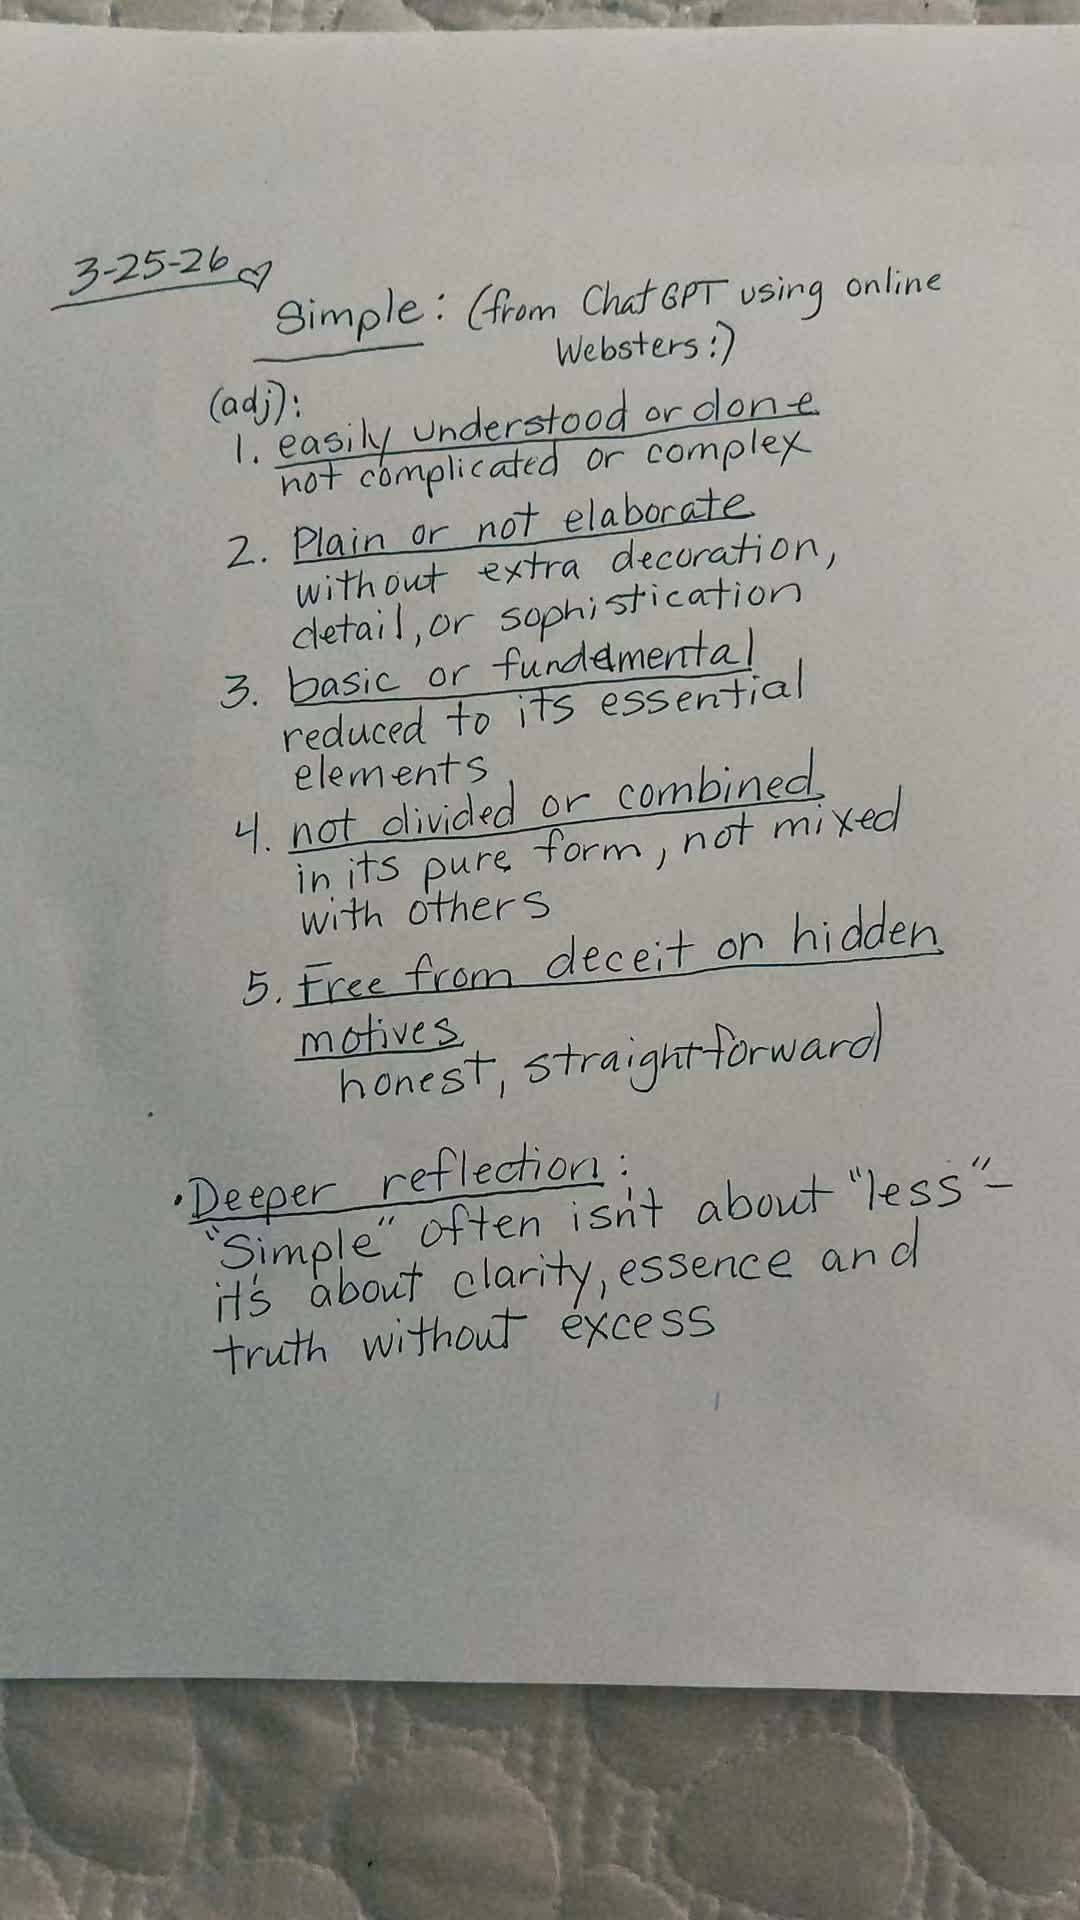 3-25-26 ♡
Simple: (from ChatGPT using online
Websters:)
(adj):
1. easily understood or done
not complicated or complex
2. Plain or not elaborate
without extra decoration,
detail, or sophistication
3. basic or fundamental
reduced to its essential
elements
4. not divided or combined
in its pure form, not mixed
with others
5. Free from deceit or hidden
motives
honest, straightforward
• Deeper reflection:
"Simple" often isn't about "less" –
it's about clarity, essence and
truth without excess